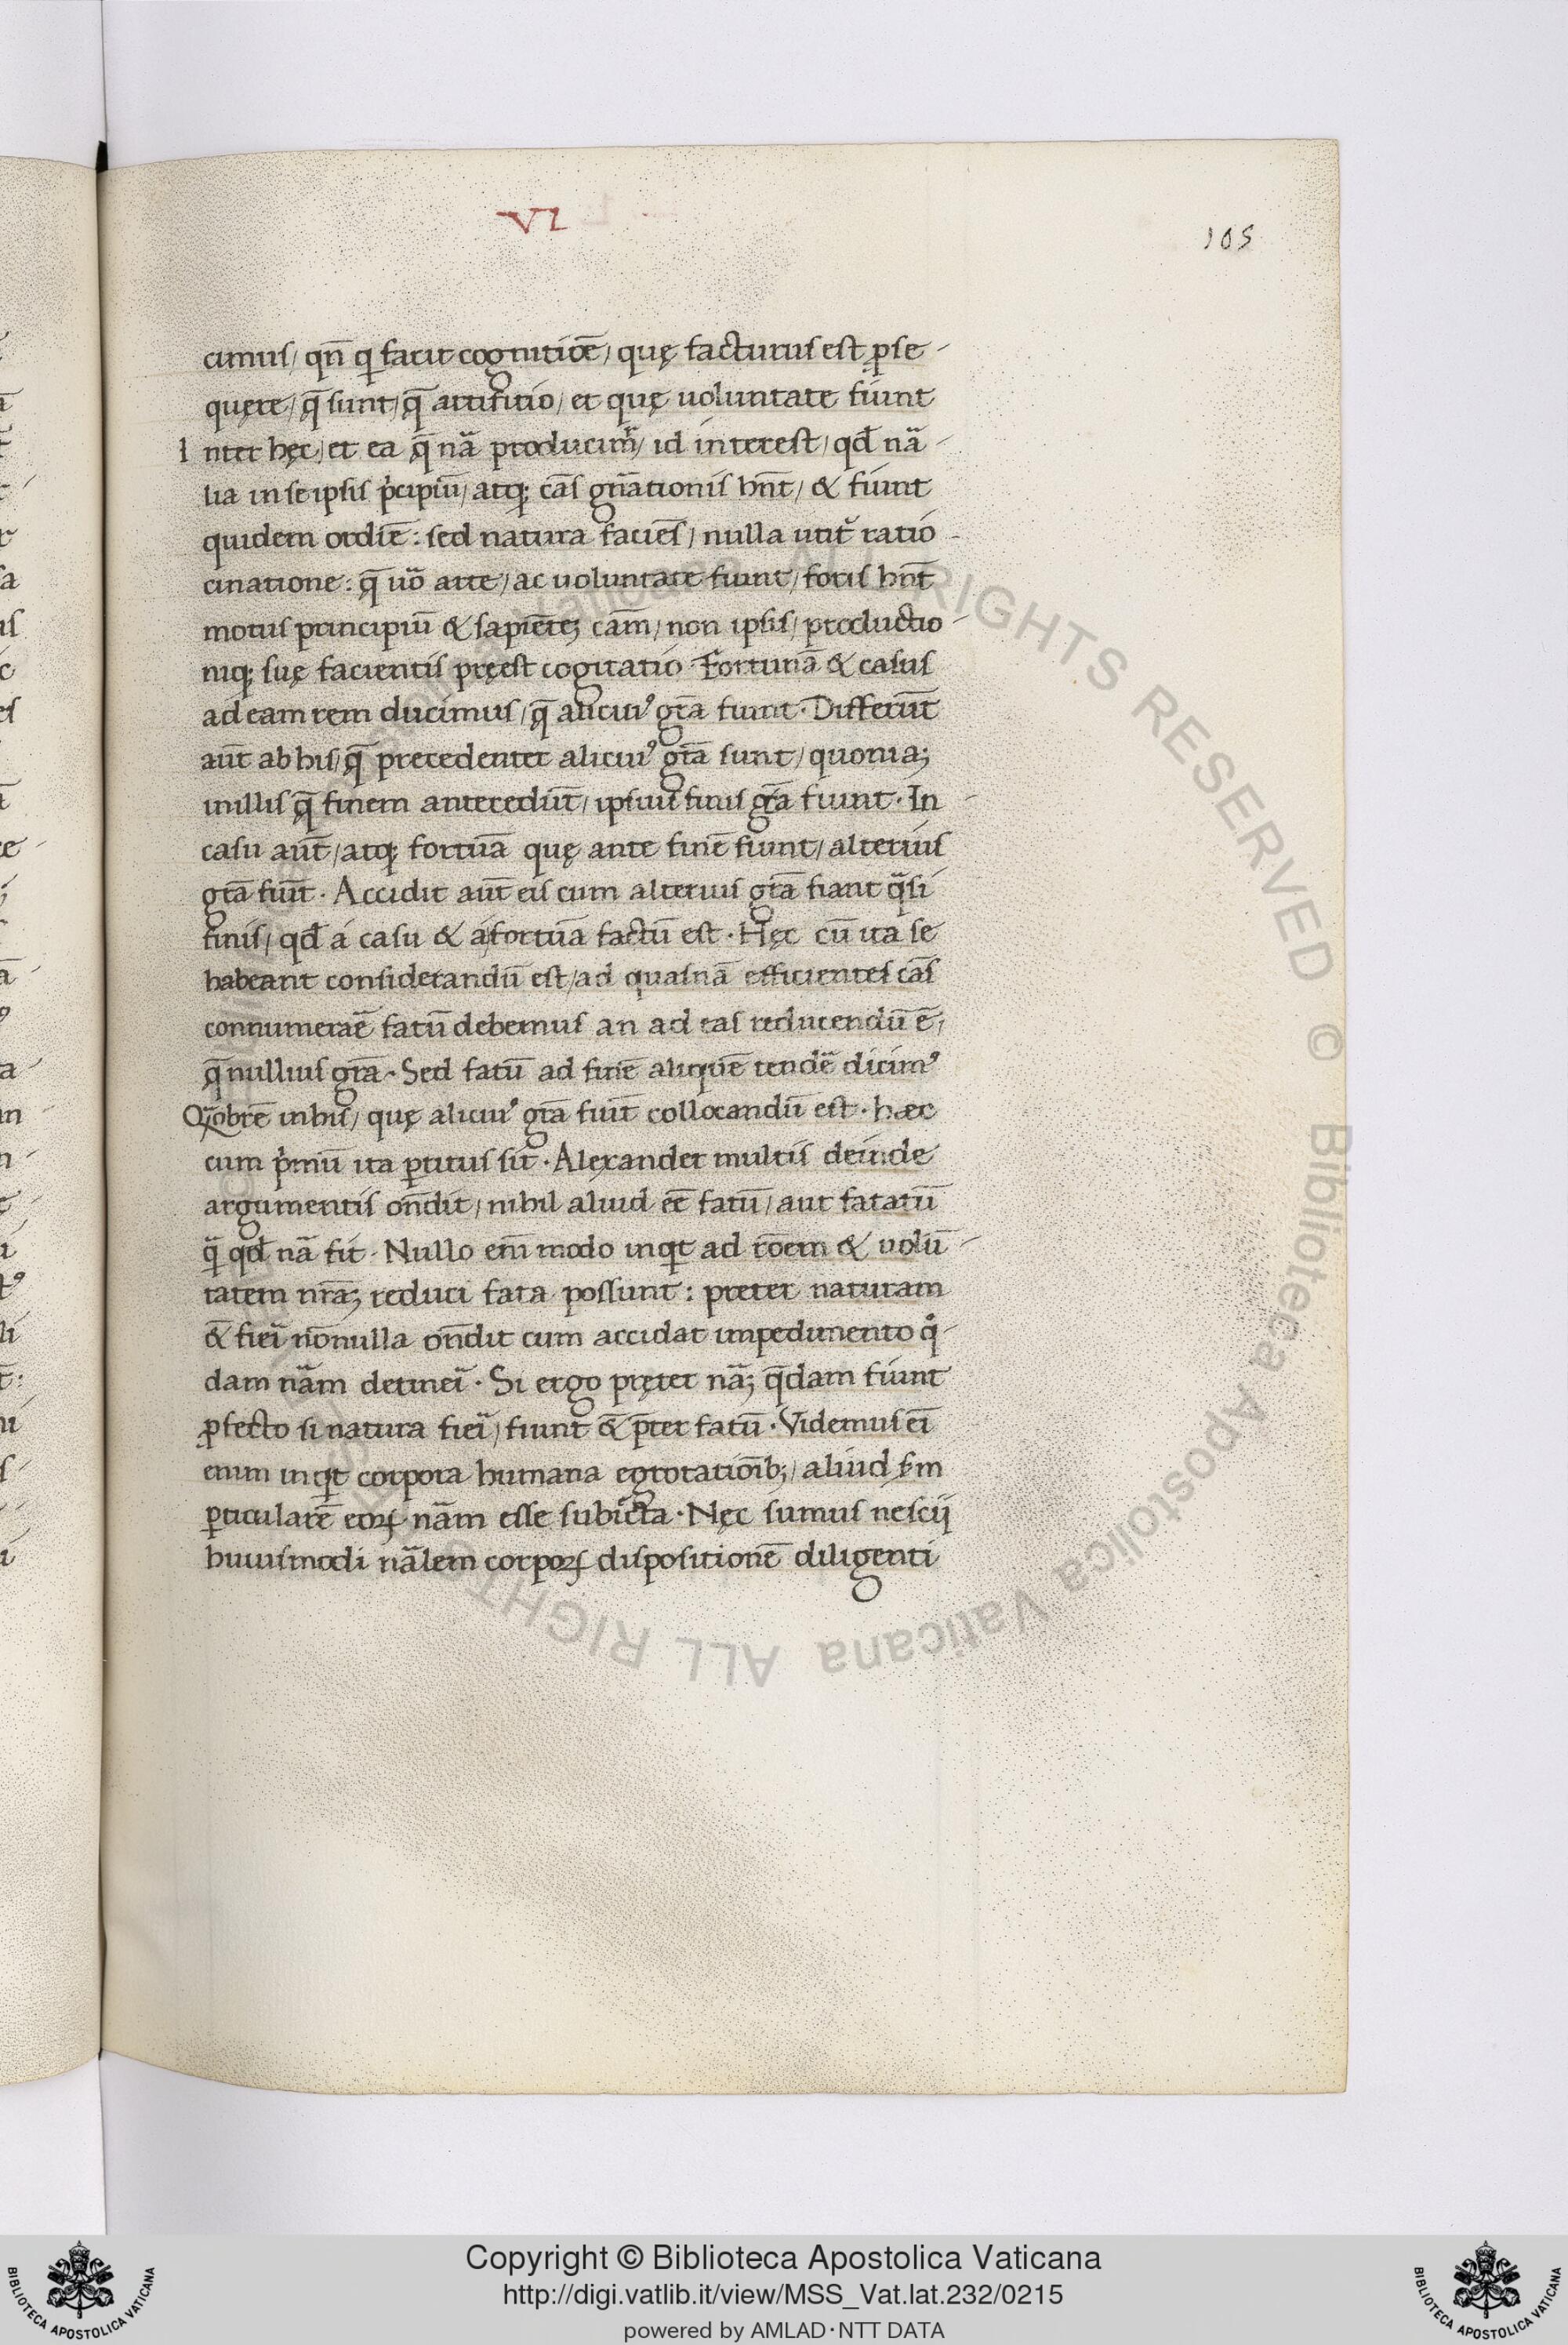 VI
105
cimus/ qn̄ q facit cognitiõe/ quę facturus est ꝓse-
quęre/ q̄ sunt/ q̄ artifitio/ et quę uoluntate fiunt
Inter hęc/ et ea q̄ nã producim̃/ id interest/ qđ nã-
lia in se ipsis p̍cipiū/ atq; cãs gñationis hñt/ & fiunt
quidem ordiē: sed natura faciēs/ nulla utit̃ ratio-
cinatione: q̄ uõ arte/ ac uoluntate fiunt/ foris hñt
motus principiū & sapiētē; cãm/ non ipsis/ productio-
niq; suę facientis pręest cogitatio. Fortunã & casus
ad eam rem ducimus/ q̄ alicui⁹ gr̃a fiunt. Differūt
aūt ab his/ q̄ precedenter alicui⁹ gr̃a sunt/ quonia;
in illis q̄ finem antecedūt/ ipsius finis gr̃a fiunt. In
casu aūt/ atq; fortūa quę ante finē fiunt/ alterius
gr̃a fiūt. Accidit aūt eis cum alterius gr̃a fiant q̃si
finis/ qđ á casu & á fortūa factū est. Hęc cū ita se
habeant considerandū est/ ad quasnã efficientes cãs
connumerãe fatū debemus an ad eas reducendū ē/
q̄ nullius gr̃a. Sed fatū ad finē aliquē tendẽ dicim⁹
Q̃obrē in his/ quę alicui⁹ gr̃a fiūt collocandū est. hæc
cum p̍mū ita ꝑtitus sit. Alexander multis deinde
argumentis oñdit/ nihil aliud eē fatū/ aut fatatū
q̃ qđ nã fit. Nullo em̄ modo inqt ad rõem & uolū-
tatem nr̃a; reduci fata possunt: preter naturam
& fieĩ nōnulla oñdit cum accidat impedimento q°-
dam nãm detineĩ. Si ergo pręter nã; q̄dam fiunt
ꝓfecto si natura fieĩ/ fiunt & p̄ter fatū. Videmus eī
enim inqt corpora humana egrotatiōib;/ aliud s̄m
ꝑticularē eoꝝ nãm esse subiēcta. Nęc sumus nescij
huiusmodi nãlem corpoꝝ dispositionē diligenti
Copyright © Biblioteca Apostolica Vaticana
http://digi.vatlib.it/view/MSS_Vat.lat.232/0215
powered by AMLAD·NTT DATA